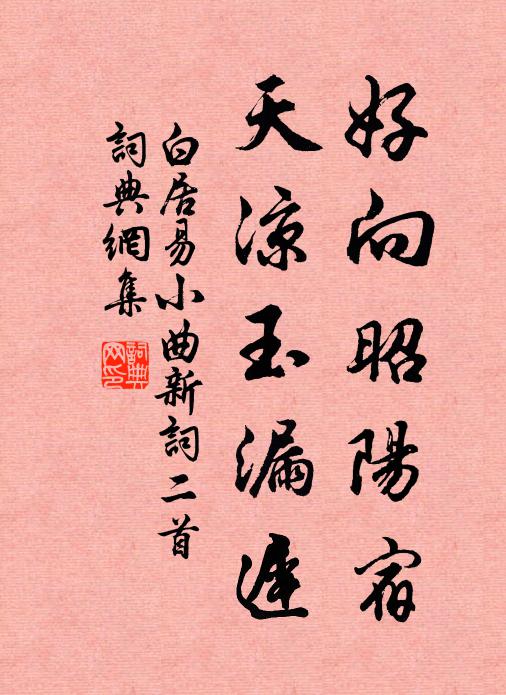 好向昭陽宿
天涼玉漏遲
白居易小曲新詞二首
詞典網集
詞典
网印